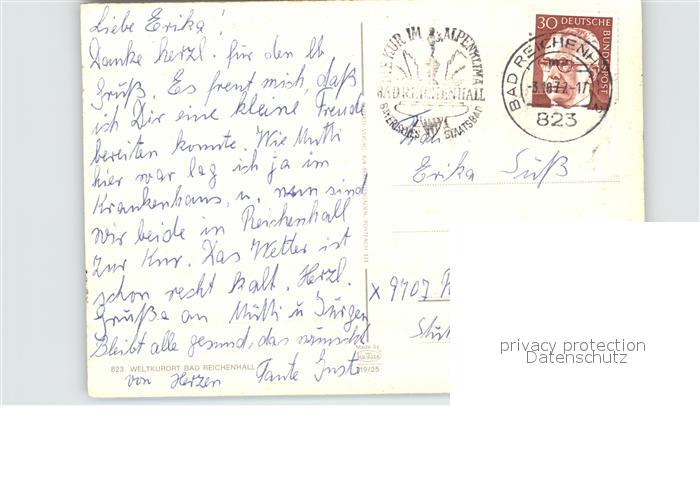 Liebe Erika!
Danke herzl. für den lb
Gruß. Es freut mich, daß
ich Dir eine kleine Freude
bereiten konnte. Wie Mutti
hier war lag ich ja im
Krankenhaus, u. nun sind
wir beide in Reichenhall
zur Kur. Das Wetter ist
schon recht kalt. Herzl.
Grüße an Mutti u Jürgen
Bleibt alle gesund, das wünscht
von Herzen Tante Gust
823 WELTKURORT BAD REICHENHALL
Made by
KRÜGER
919/25
KUR IM ALPENKLIMA
BAD REICHENHALL
BAYERISCHES STAATSBAD
30 DEUTSCHE BUNDESPOST
BAD REICHENHALL
-3.10.77-17
823
Frau
Erika Süß
X 9707
privacy protection
Datenschutz